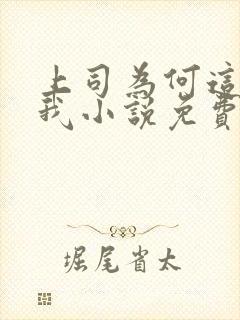 上司為何這
我小說免費
堀尾省太